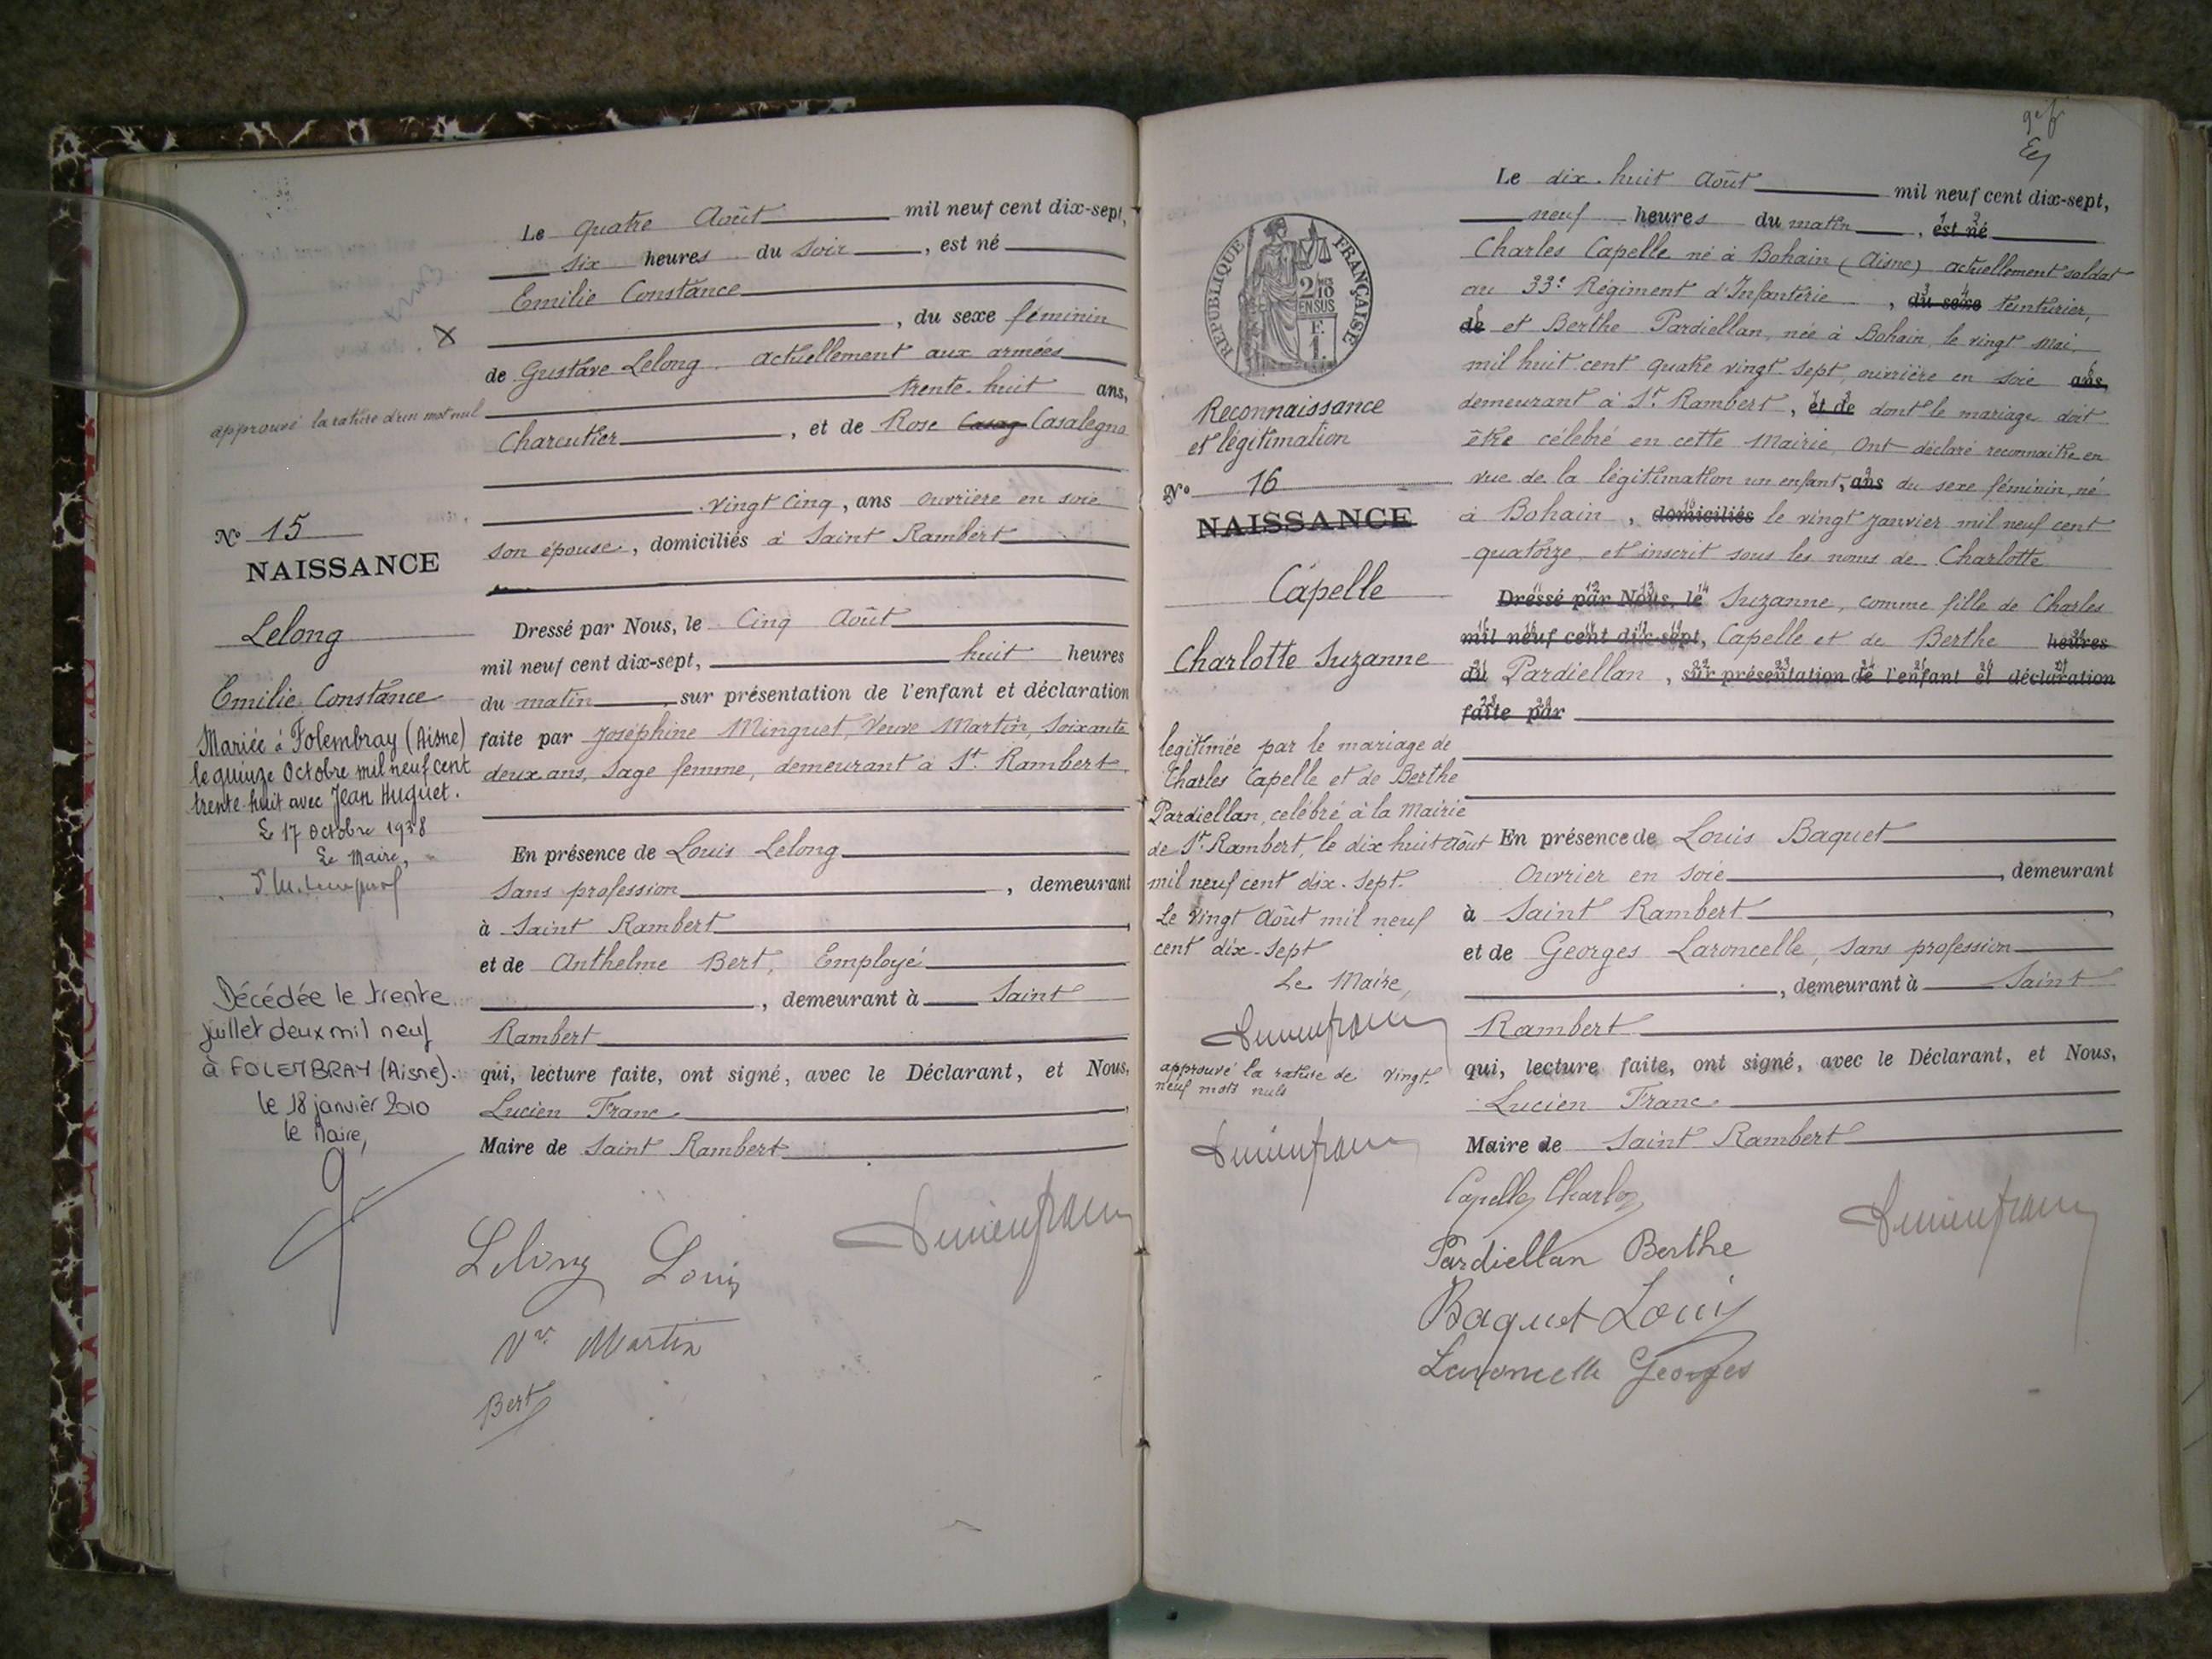 Le quatre Août mil neuf cent dix-sept,
six heures du soir, est né
Emilie Constance
, du sexe féminin
de Gustave Lelong actuellement aux armées
trente-huit ans,
approuvé la rature d'un mot nul
Charcutier, et de Rose Casag Casalegno
vingt cinq, ans ouvrière en soie
son épouse, domiciliés à Saint Rambert
No 15
NAISSANCE
Lelong
Emilie Constance
Mariée à Folembray (Aisne)
le quinze Octobre mil neuf cent
trente-huit avec Jean Huguet.
Le 17 Octobre 1938
Le Maire,
Décédée le trente
juillet deux mil neuf
à FOLEMBRAY (Aisne).
le 18 janvier 2010
le Maire,
Dressé par Nous, le Cinq Août
mil neuf cent dix-sept, huit heures
du matin, sur présentation de l'enfant et déclaration
faite par Joséphine Minguet, Veuve Martin, soixante
deux ans, Sage femme, demeurant à St Rambert.
En présence de Louis Lelong
Sans profession, demeurant
à Saint Rambert
et de Anthelme Bert, Employé
, demeurant à Saint
Rambert
qui, lecture faite, ont signé, avec le Déclarant, et Nous,
Lucien Franc
Maire de Saint Rambert
Lelong Louis
Lucien franc
Vve Martin
Bert
REPUBLIQUE FRANÇAISE
Reconnaissance
et légitimation
No 16
NAISSANCE
Capelle
Charlotte Suzanne
legitimée par le mariage de
Charles Capelle et de Berthe
Pardiellan, celébré à la Mairie
de St Rambert, le dix huit août
mil neuf cent dix-sept.
Le Vingt Août mil neuf
cent dix-sept
Le Maire,
Lucien franc
approuvé la rature de Vingt
neuf mots nuls
Lucien franc
Le dix-huit Août mil neuf cent dix-sept,
neuf heures du matin, est né
Charles Capelle né à Bohain (Aisne) actuellement soldat
au 33e Régiment d'Infanterie, du sexe teinturier,
de et Berthe Pardiellan, née à Bohain, le vingt Mai
mil huit cent quatre vingt-sept, ouvrière en soie ans,
demeurant à St Rambert, et de dont le mariage doit
être célébré en cette Mairie, Ont déclaré reconnaitre en
vue de la légitimation un enfant, ans du sexe féminin, né
à Bohain, domiciliés le vingt Janvier mil neuf cent
quatorze et inscrit sous les noms de Charlotte
Dressé par Nous, le Suzanne, comme fille de Charles
mil neuf cent dix-sept, Capelle et de Berthe heures
du Pardiellan, sur présentation de l'enfant et déclaration
faite par
En présence de Louis Baquet
Ouvrier en soie, demeurant
à Saint Rambert
et de Georges Laroncelle, Sans profession
, demeurant à Saint
Rambert
qui, lecture faite, ont signé, avec le Déclarant, et Nous,
Lucien Franc
Maire de Saint Rambert
Capelle Charles
Lucien franc
Pardiellan Berthe
Baquet Louis
Laroncelle Georges